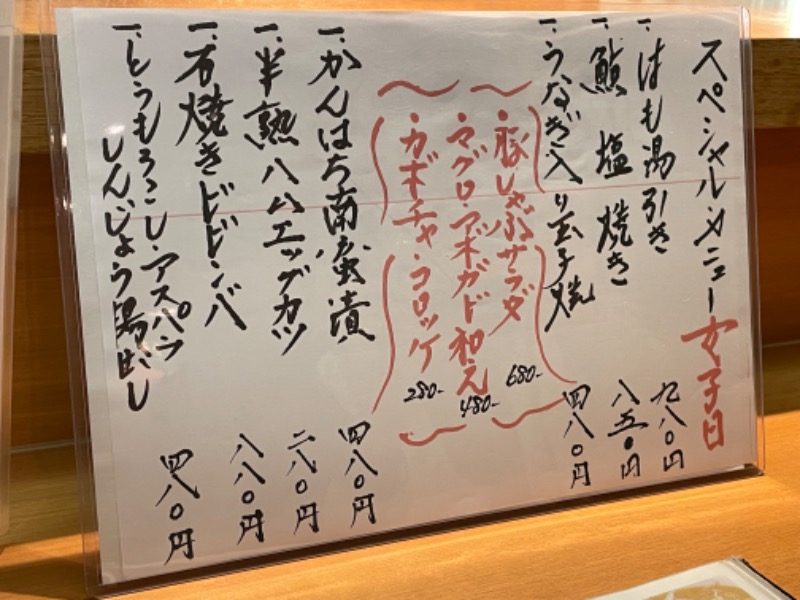 スペシャル・メニュー 女子日
一、はも湯引き 九八〇円
一、鮎塩焼き 八五〇円
一、うなぎ入り玉子焼 四八〇円
・豚しゃぶサラダ 680-
・マグロ・アボガド和え 480-
・カボチャ・コロッケ 280-
一、かんぱち南蛮漬 四八〇円
一、半熟ハムエッグカツ 二八〇円
一、石焼きビビンバ 八八〇円
一、とうもろこし・アスパラ
しんじょう揚出し 四八〇円